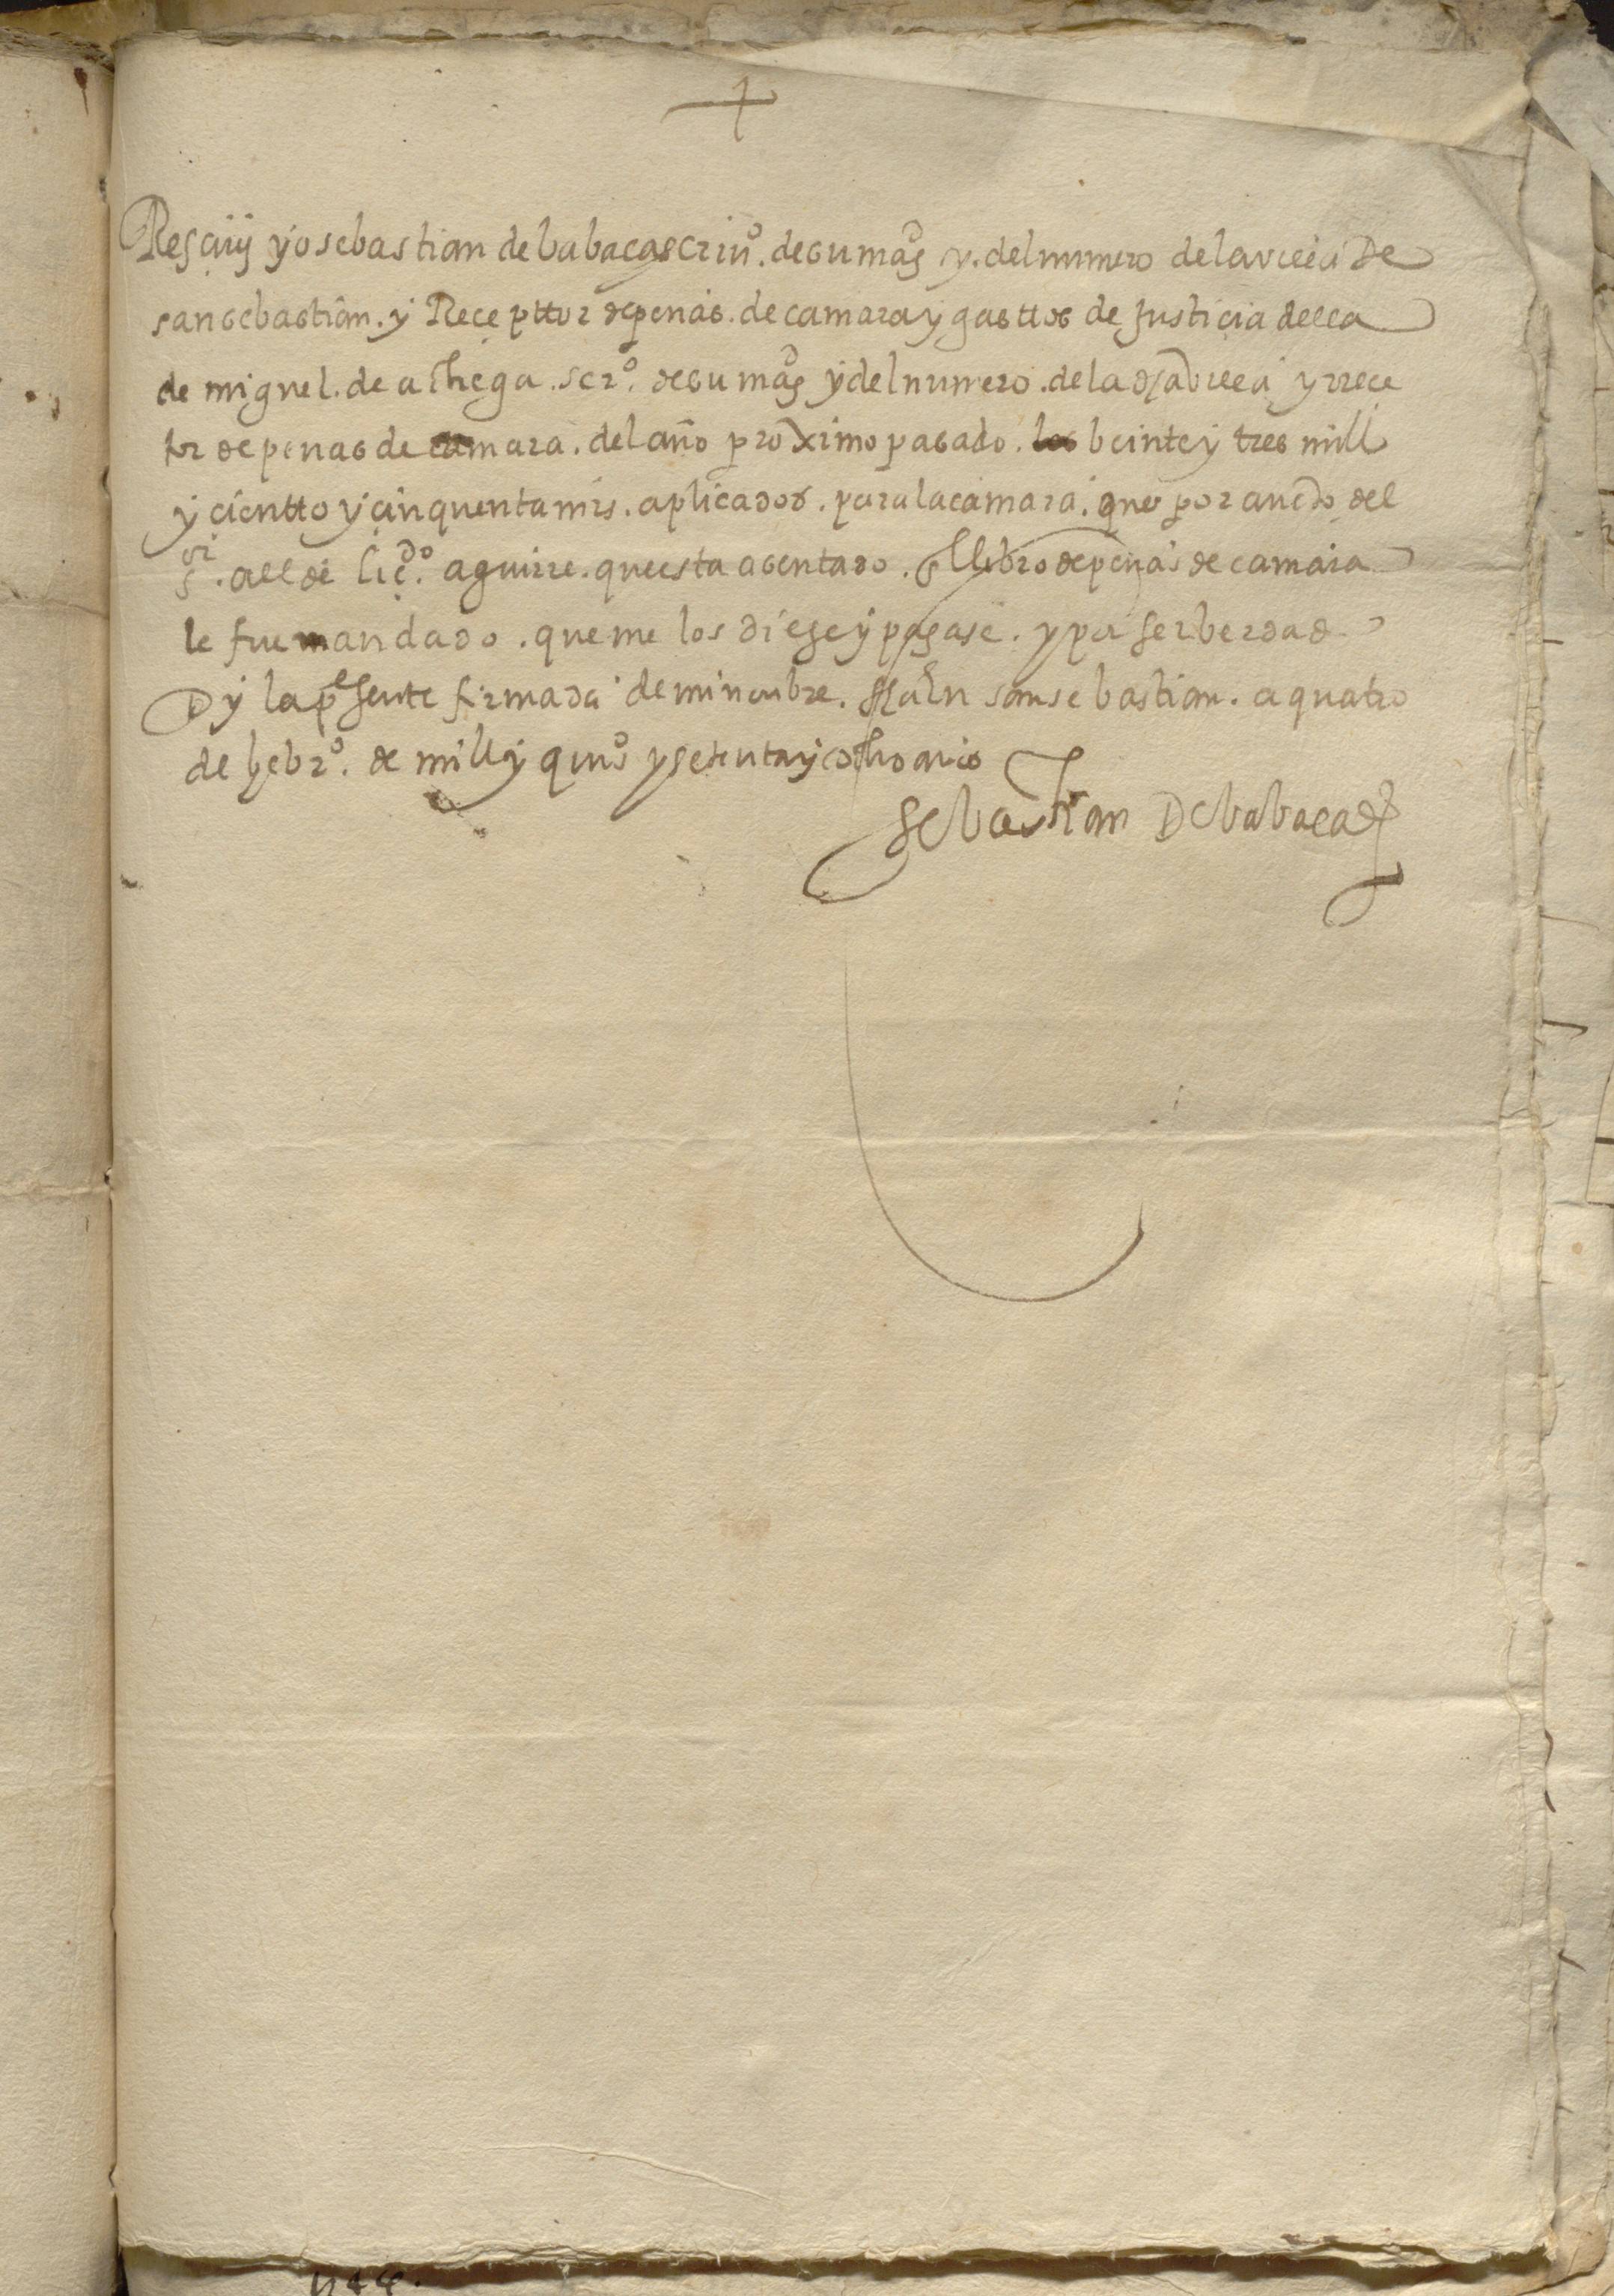 +
Resciuy yo sebastian de babaca scriuº. de su magᵈ y. del numero de la villa De
san sebastian. y Recepttor de penas. de camara y gasttos de justicia della
de miguel. de achega. scrº. de su magᵈ y del numero. de la dha villa y rrece
tor de penas de camara. del año proximo pasado. los beinte y tres mill
y cientto y cinquenta mrs. aplicados. para la camara. que por auto del
sʳ. allde licᵈº. aguirre. que esta asentado. libro de penas de camara
le fue mandado. que me los diese y pagase. y por ser berdad
Dy la presente firmada de mi nonbre. ffha En san sebastian. a quatro
de hebrº. de mill y quiºs y setenta y ocho años
Sebastian De babaca